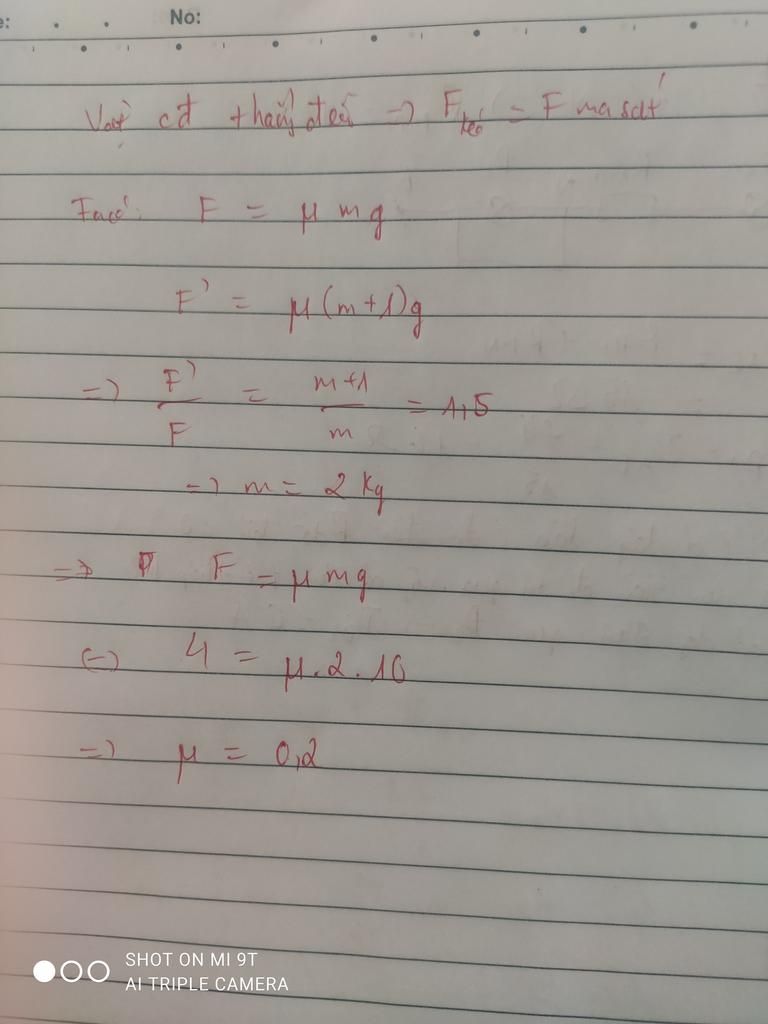 No:
Vật cđ thẳng đều => F kéo = F ma sát
Ta có: F = μ m g
F' = μ(m+1)g
=> F'/F = m+1/m = 1,5
=> m = 2 kg
=> F = μ m g
(=) 4 = μ.2.10
=> μ = 0,2
SHOT ON MI 9T
AI TRIPLE CAMERA